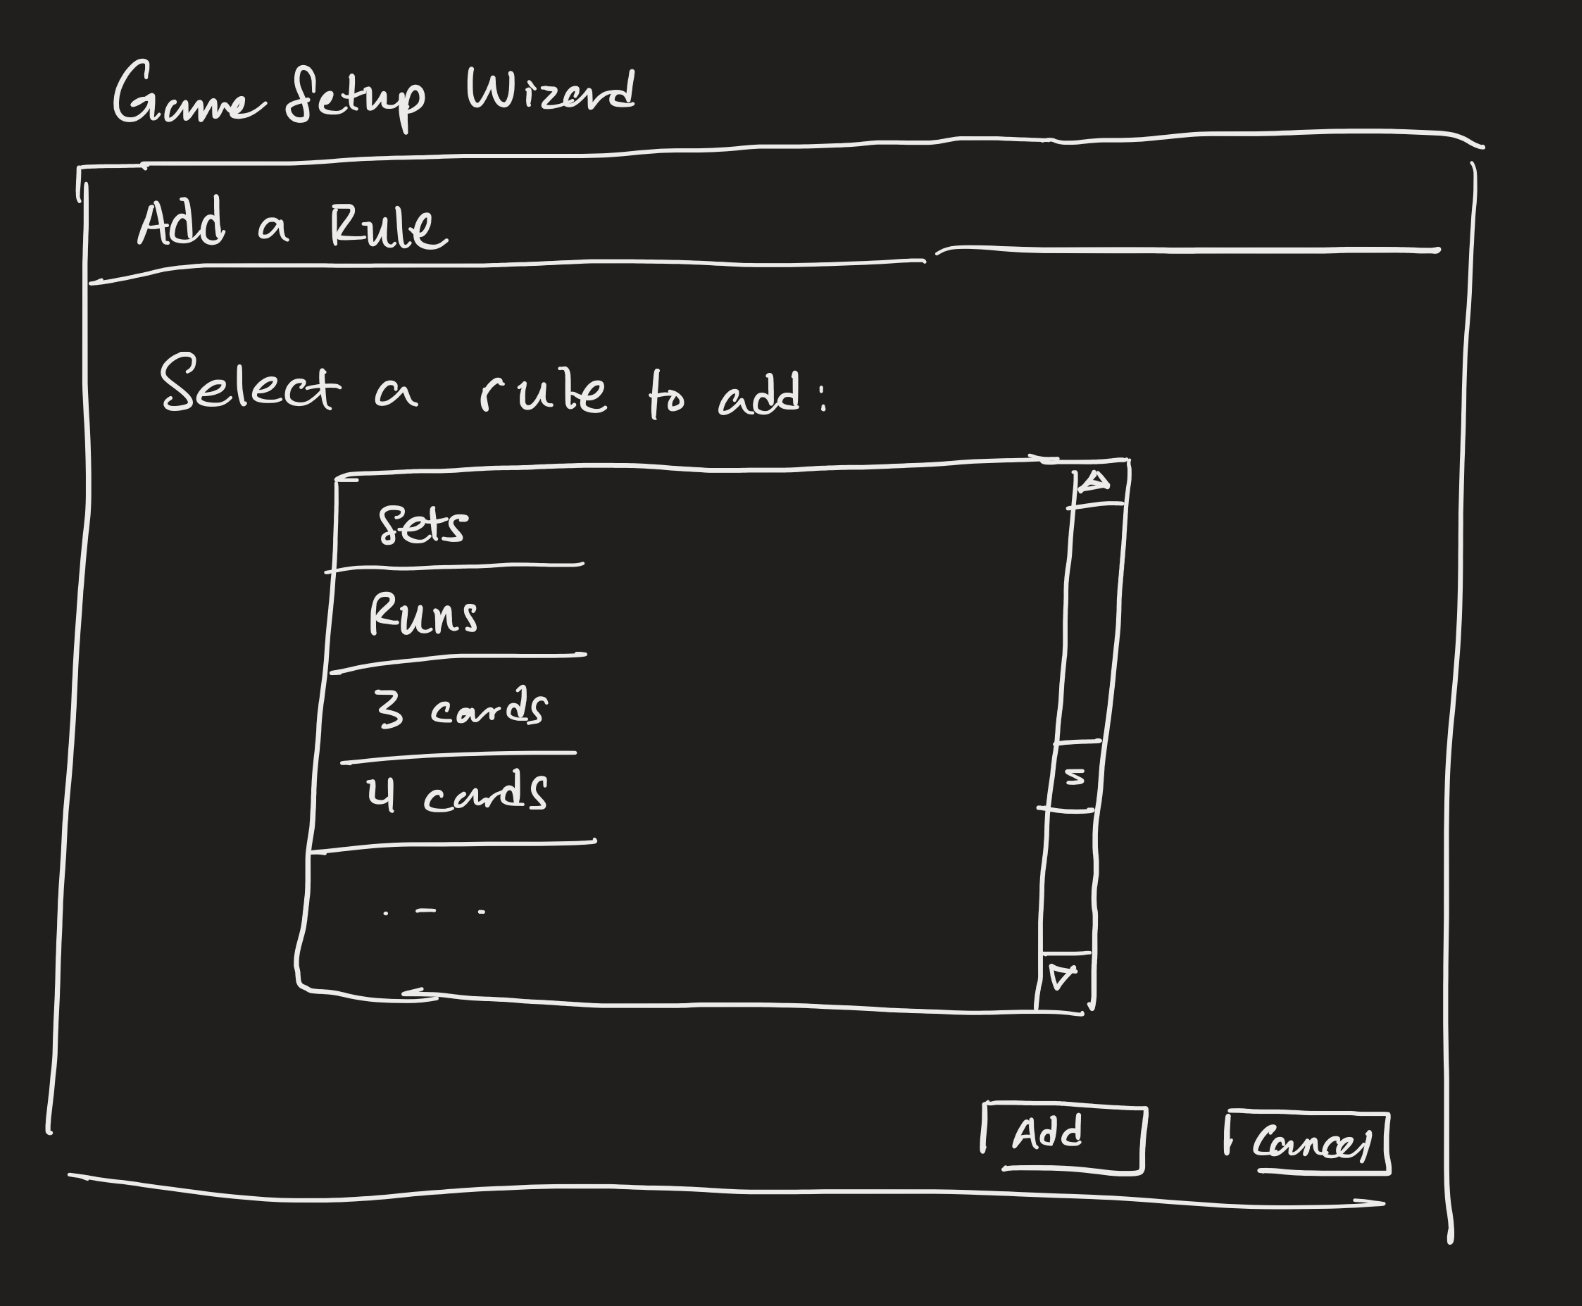 Game Setup Wizard
Add a Rule
Select a rule to add:
Sets
Runs
3 cards
4 cards
...
Add
Cancel